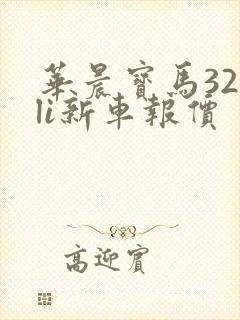 華晨寶馬32
li新車報價
高迎賓